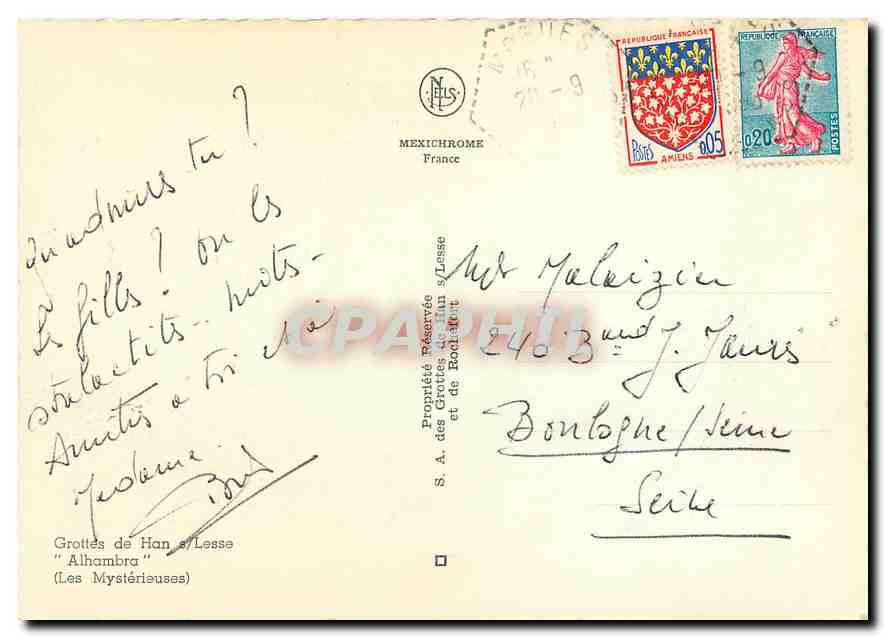 NELS
MEXICHROME
France
REPUBLIQUE FRANÇAISE
POSTES
0,05
AMIENS
REPUBLIQUE FRANÇAISE
0,20
POSTES
16
-9
Qu'admires tu ?
Les filles ? ou les
stalactites.. mots-
Amitiés à toi et à
Madame
Propriété Réservée
S. A. des Grottes de Han s/Lesse
et de Rochefort
CPAPHIL
240 Bd J. Jaurès
Boulogne/Seine
Seine
Grottes de Han s/Lesse
" Alhambra "
(Les Mystérieuses)